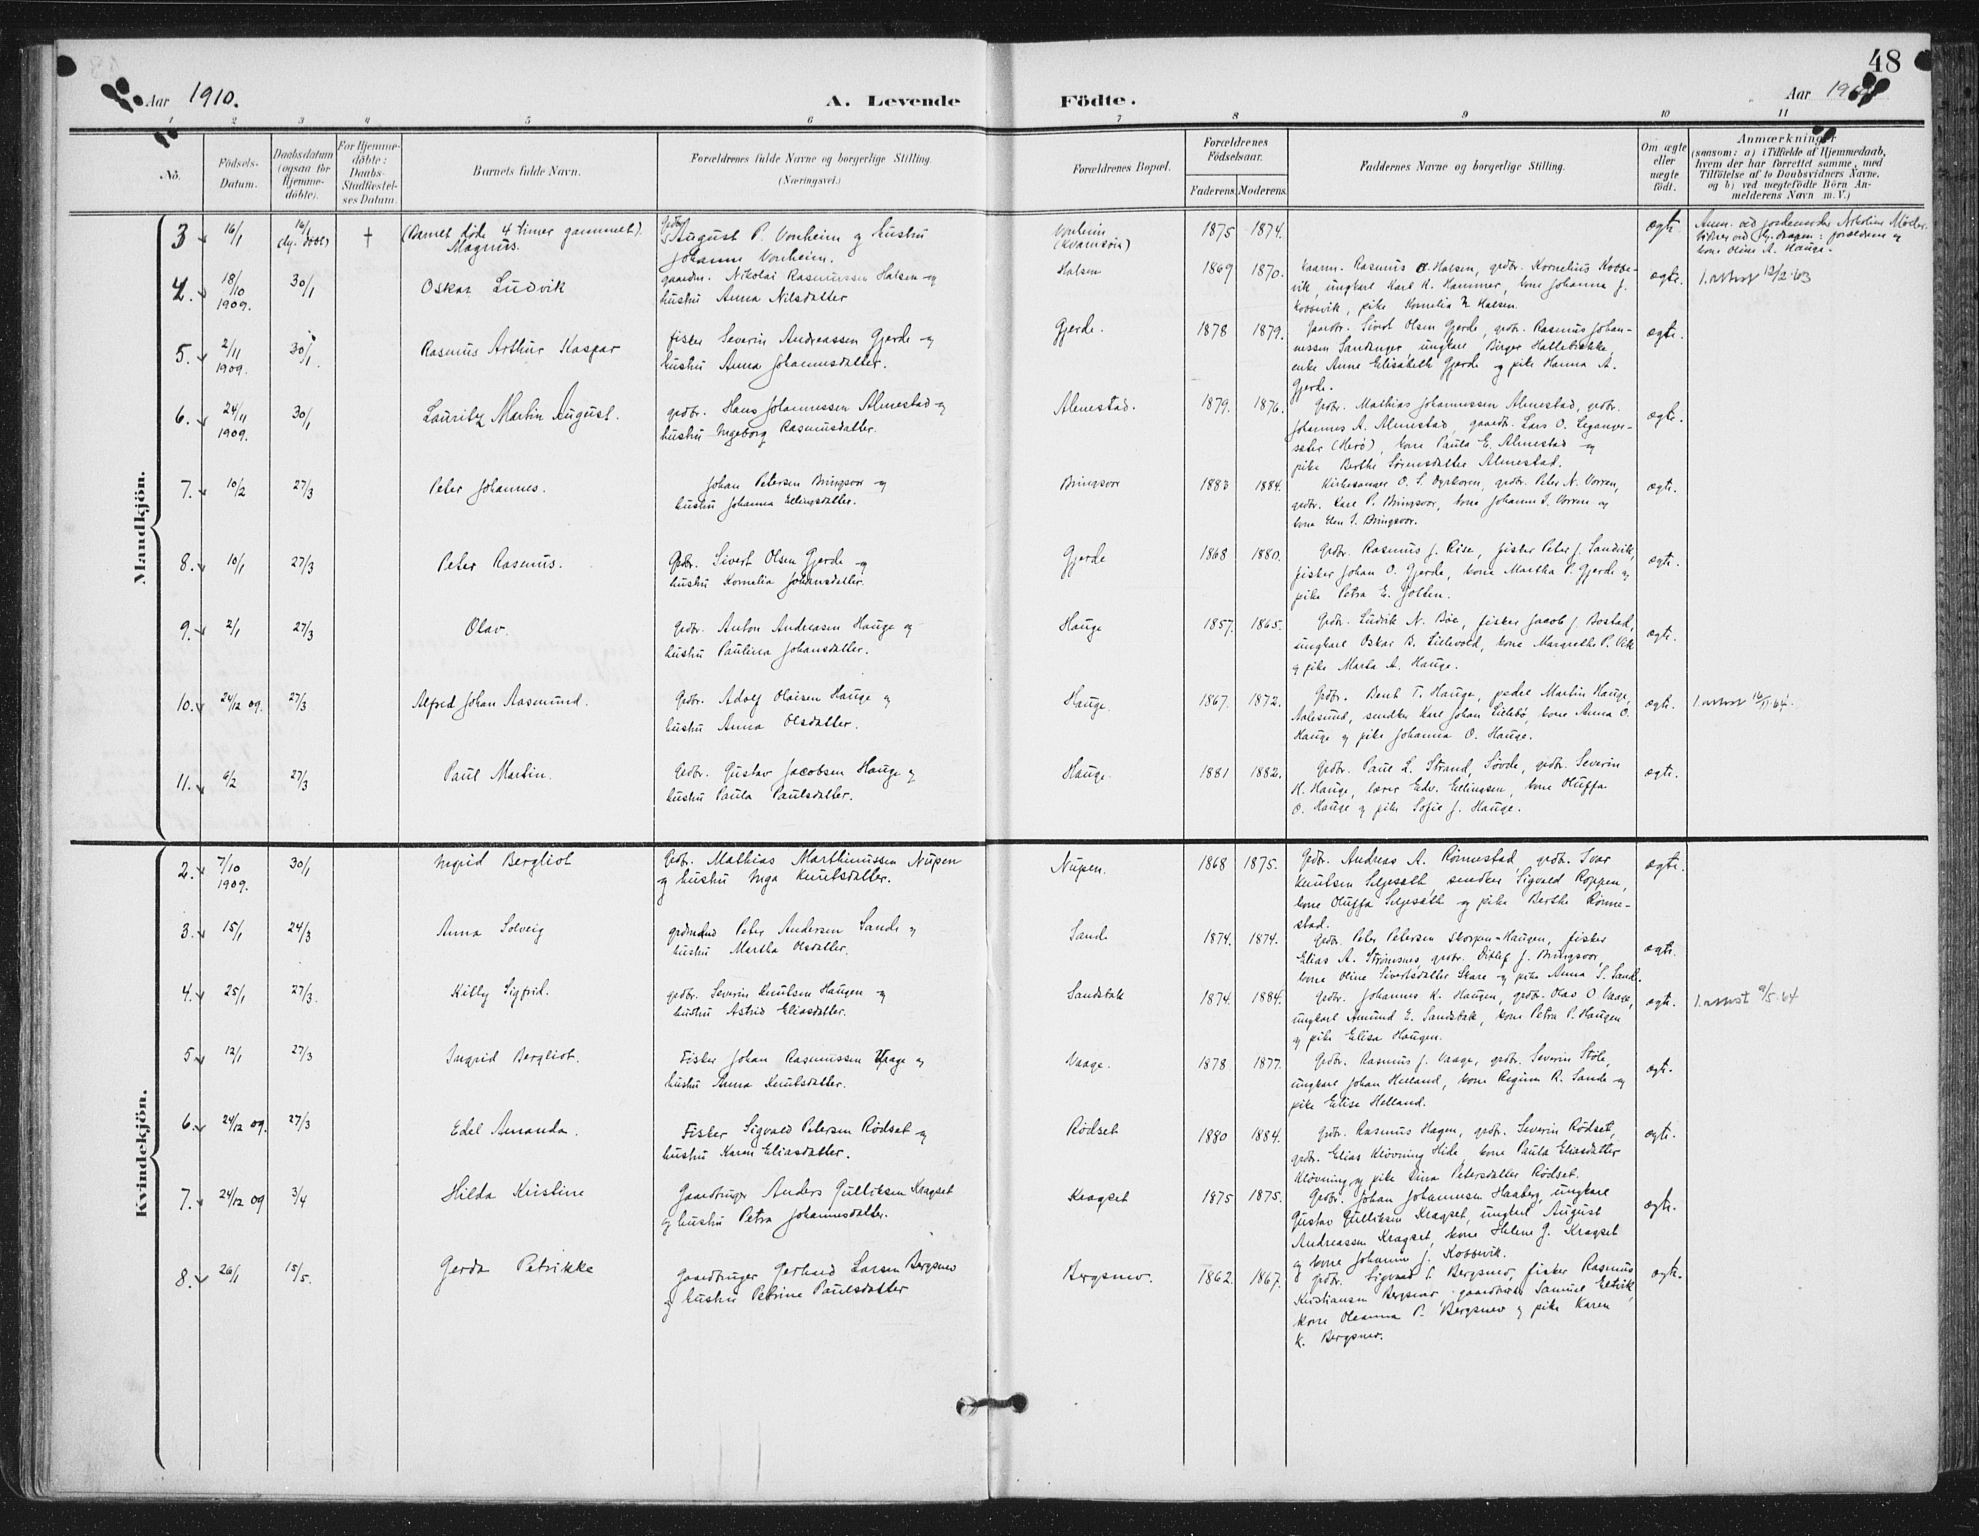 48
Aar 1910. A. Levende Födte. Aar
1 2 3 4 5 6 7 8 9 10 11
No.
Födsels-Datum.
Daabsdatum (ogsaa for Hjemme-döbte).
For Hjemme-döbte: Daabs-Stadfæstel-ses Datum.
Barnets fulde Navn.
Forældrenes fulde Navne og borgerlige Stilling.
(Næringsvei.)
Forældrenes Bopæl.
Forældrenes Födselsaar.
Faderens Moderens
Faddernes Navne og borgerlige Stilling.
Om ægte eller uægte födt.
Anmærkninger
(saasom: a) i Tilfælde af Hjemmedaab,
hvem der har forrettet samme, med
Tilföielse af to Daabsvidners Navne.
og b) ved uægtefödte Börn An-
melderens Navn m. V.)
Mandkjön.
3 16/1 16/1 † (Barnet døde 4 timer gammelt). August P. Vonheim og hustru 1875 1874. ægte
(hj. døbt) Magnus. Johanne Vonheim.
kone Oline A. Hauge.
4. 18/10 1909. 30/1 Oskar Ludvik gaardm. Nikolai Rasmussen Halsen og Halsen 1869 1870. Rasmus A. Halsen, grdbr. Kornelius Kobbe- ægte. 12/2 63
hustru Anna Nilsdatter vik, ungkarl Karl K. Hammer, kone Johanna J.
Kobbevik, pike Kornelia N. Halsen.
5. 2/11 1909. 30/1. Rasmus Arthur Kaspar fisker Severin Andreassen Gjerde og Gjerde. 1878 1879. Gaardbr. Sivert Olsen Gjerde, grdbr. Rasmus Johan- ægte.
hustru Anna Johannesdatter. nessen Sandanger ungkarl Birger Hallebrække
enke Anne Elisabeth Gjerde og pike Hanna A.
Gjerde.
6. 24/11 1909. 30/1 Lauritz Martin August. grdbr. Hans Johannessen Almestad og Almestad. 1879. 1876. Grdbr. Mathias Johannessen Almestad, grdbr. ægte.
hustru Ingeborg Rasmusdatter. Johannes A. Almestad, gaardbr. Lars O. Leganger-
sæter (Herø), kone Paula E. Almestad og
pike Berthe Sørensdatter Almestad.
7. 10/2 27/3 Peter Johannes. Johan Petersen Bringsvor og Bringsvor 1883 1884. Kirkesanger O. S. Dyrkoren, grdbr. Peter N. Vorren, ægte.
hustru Johanna Ellingsdatter. grdbr. Karl P. Bringsvor, kone Johanne I. Vorren og
kone Elen I. Bringsvor.
8. 10/1 27/3 Peter Rasmus. Grdbr. Sivert Olsen Gjerde og Gjerde 1868 1880. Grdbr. Rasmus J. Rise, fisker Peter J. Sandvik, ægte.
hustru Kornelia Johansdatter. fisker Johan O. Gjerde, kone Martha P. Gjerde og
pike Petra E. Jolsen.
9. 2/1 27/3 Olav. Grdbr. Anton Andreasen Hauge og Hauge 1857. 1865. Grdbr. Ludvik N. Böe, fisker Jacob J. Bostad, ægte.
hustru Paulina Johansdatter. ungkarl Oskar B. Lillevold, kone Margrethe P. Vik
og pike Marta A. Hauge.
10. 24/12 09. 27/3 Alfred Johan Aasmund. Grdbr. Adolf Olaisen Hauge og Hauge. 1867. 1872. Grdbr. Bent T. Hauge, pedel Martin Hauge, ægte. 16/11 64.
hustru Anna Olsdatter. Aalesund, snedker Karl Johan Lillebö, kone Anna O.
Hauge og pike Johanna O. Hauge.
11. 6/2 27/3 Paul Martin. Grdbr. Gustav Jacobsen Hauge og Hauge. 1881 1882. Grdbr. Paul L. Strand, Sövde, grdbr. Severin ægte.
hustru Paula Paulsdatter. H. Hauge, lærer Edv. Ellingsen, kone Oluffa
O. Hauge og pike Sofie J. Hauge.
Kvindekjön.
2. 7/10 1909. 30/1 Ingrid Bergliot Grdbr. Mathias Marthinussen Nupen Nupen. 1868 1875. Grdbr. Andreas A. Rönnestad grdbr. Ivar ægte.
og hustru Inga Knutsdatter. Knutsen Seljesæth snedker Sigvald Roppen,
kone Oluffa Seljesæth og pike Berthe Rönne-
stad.
3. 15/1 24/3 Anna Solveig Peter Andersen Sande og Sande 1874. 1874. Grdbr. Peter Petersen Skorpen-Haugen, fisker ægte.
hustru Martha Olsdatter. Elias A. Strömsnes, grdbr. Ditlef J. Bringsvor,
kone Oline Sivertsdatter Skare og pike Anna S. Sande.
4. 25/1 27/3. Killy Sigfrid. grdbr. Severin Knutsen Haugen og Sandsbak 1874. 1884. Grdbr. Johannes K. Haugen, grdbr. Olav O. Vaage, ægte. 9/5 64
hustru Astrid Eliasdatter. ungkarl Amund E. Sandsbak, kone Petra P. Haugen
og pike Elisa Haugen.
5 12/1 27/3 Ingrid Bergliot. Fisker Johan Rasmussen Vaage og Vaage. 1878 1877. Grdbr. Rasmus J. Vaage, grdbr. Severin Støle, ægte.
hustru Anna Knutsdatter. ungkarl Johan Helland, kone Regina R. Sande og
pike Elise Helland.
6. 24/12 09. 27/3 Edel Amanda. Fisker Sigvald Petersen Rødset og Rødset 1880 1884. Grdbr. Rasmus Hagen, grdbr. Severin Rødset, ægte.
hustru Karen Eliasdatter. grdbr. Elias Kløvning Hide, kone Paula Eliasdatter
Kløvning og pike Dina Petersdatter Rødset.
7. 24/12 09 3/4 Hilda Kristine Gaardbruger Anders Gulliksen Kragset Kragset 1875 1875. Grdbr. Johan Johannesen Haaberg, ungkarl ægte.
og hustru Petra Johannesdatter. Gustav Gulliksen Kragset, ungkarl August
Andreassen Kragset, kone Helene J. Kragset
og kone Johanna J. Kobbevik.
8. 26/1 15/5. Gerda Petrikke Gaardbruger Gerhard Larsen Bergsnev Bergsnev. 1862. 1867. Grdbr. Sigvald S. Bergsnev, fisker Rasmus ægte.
og hustru Petrine Paulsdatter Kristiansen Bergsnev, gaardbruger Samuel Eltvik,
kone Oleanna P. Bergsnev og pike Karen
K. Bergsnev.